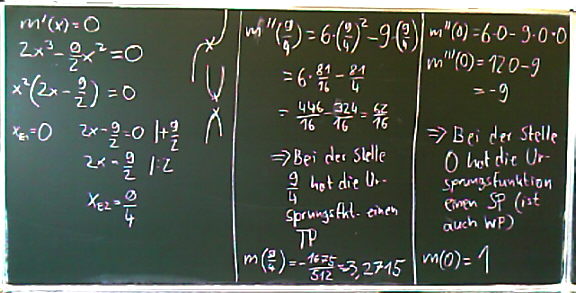 m'(x)=0
2x³-9/2x²=0
x²(2x-9/2)=0
x_E1=0 2x-9/2=0 |+9/2
2x=9/2 |:2
x_E2=9/4
m''(9/4)=6·(9/4)²-9·(9/4)
=6·81/16-81/4
=446/16-324/16=62/16
⇒Bei der Stelle
9/4 hat die Ur-
sprungsfkt. einen
TP
m(9/4)=-1675/512≈-3,2715
m''(0)=6·0-9·0=0
m'''(0)=12·0-9
=-9
⇒Bei der Stelle
0 hat die Ur-
sprungsfunktion
einen SP (ist
auch WP)
m(0)=1